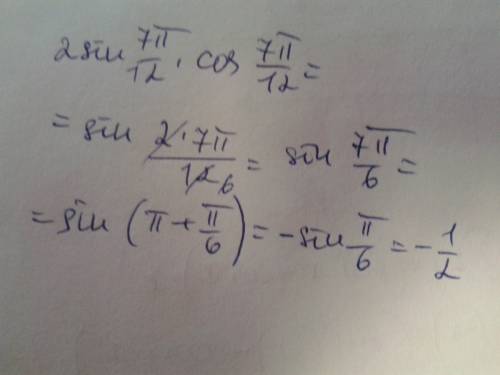 2 sin 7π/12 · cos 7π/12 =
= sin 2·7π/12 6 = sin 7π/6 =
= sin (π + π/6) = - sin π/6 = - 1/2